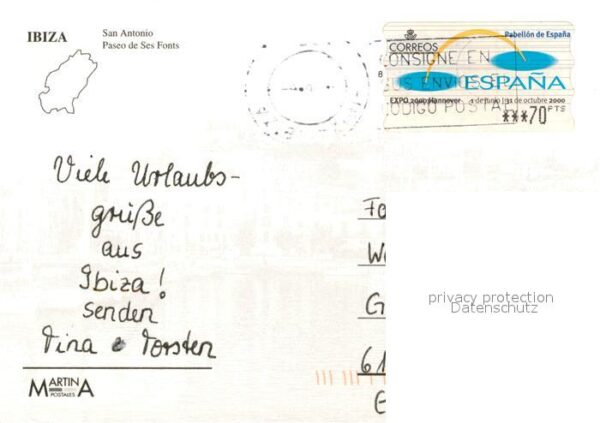 IBIZA
San Antonio
Paseo de Ses Fonts
CORREOS
Pabellón de España
CONSIGNE EN
SUS ENVIOS E
ESPAÑA
EXPO 2000 Hannover 1 de junio / 31 de octubre 2000
CODIGO POSTAL
***70 PTS
8
Viele Urlaubs-
grüße
aus
Ibiza!
senden
Tina & Torsten
Fa
W
G
61
privacy protection
Datenschutz
MARTINA
POSTALES